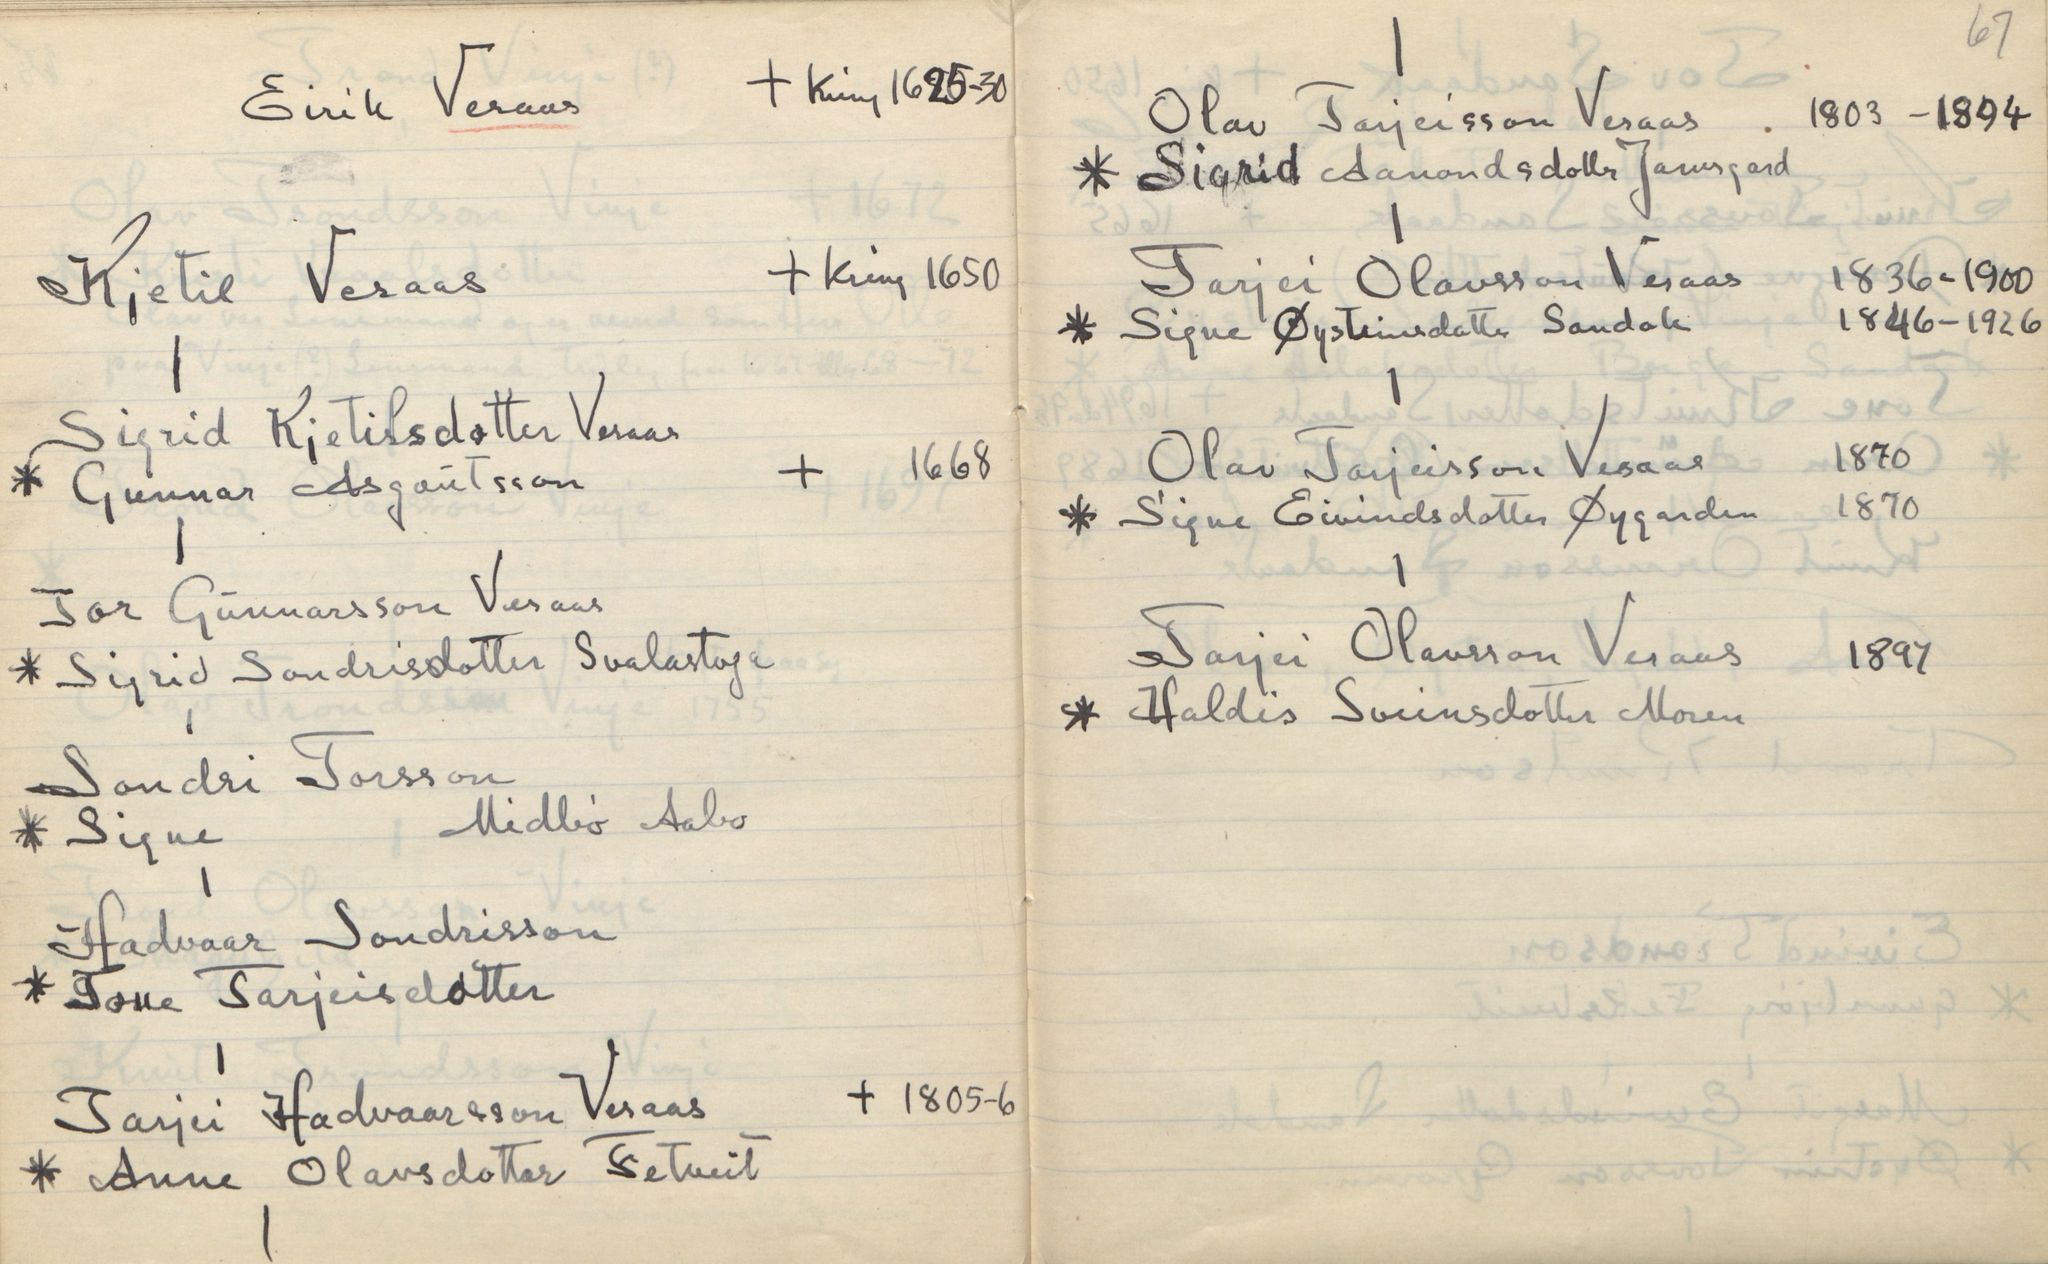 Eirik Vesaas + kring 1625-30
Kjetil Vesaas + kring 1650
Sigrid Kjetilsdotter Vesaas
* Gunnar Asgautsson + 1668
Tor Gunnarsson Vesaas
* Sigrid Sondrisdotter Svalastoga
Sondri Torsson
* Signe Midbö Aabo
Hadvaar Sondrisson
* Tone Tarjeisdotter
Tarjei Hadvaarsson Vesaas + 1805-6
* Anne Olavsdotter Fetveit
67
Olav Tarjeisson Vesaas 1803 - 1894
* Sigrid Aamondsdotter
Tarjei Olavsson Vesaas 1836-1900
* Signe Øysteinsdotter Sandok 1846-1926
Olav Tarjeisson Vesaas 1870
* Signe Eivindsdotter Øygarden 1870
Tarjei Olavsson Vesaas 1897
* Haldis Sveinsdotter Moren